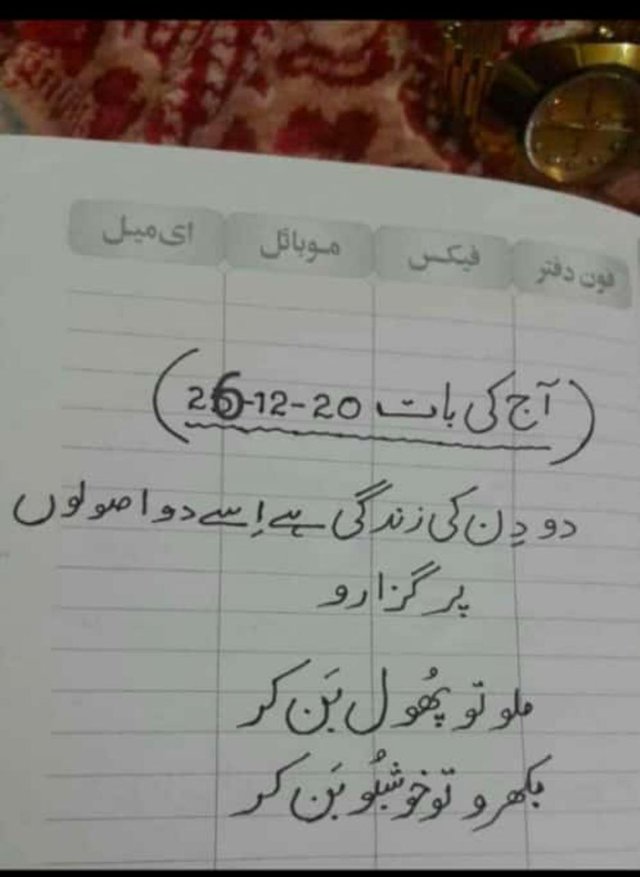 فون دفتر فیکس موبائل ای میل
(آج کی بات 26-12-20)
دو دِن کی زندگی ہے اِسے دو اصولوں
پر گزارو
ملو تو پھُول بَن کر
بکھرو تو خوشبُو بَن کر